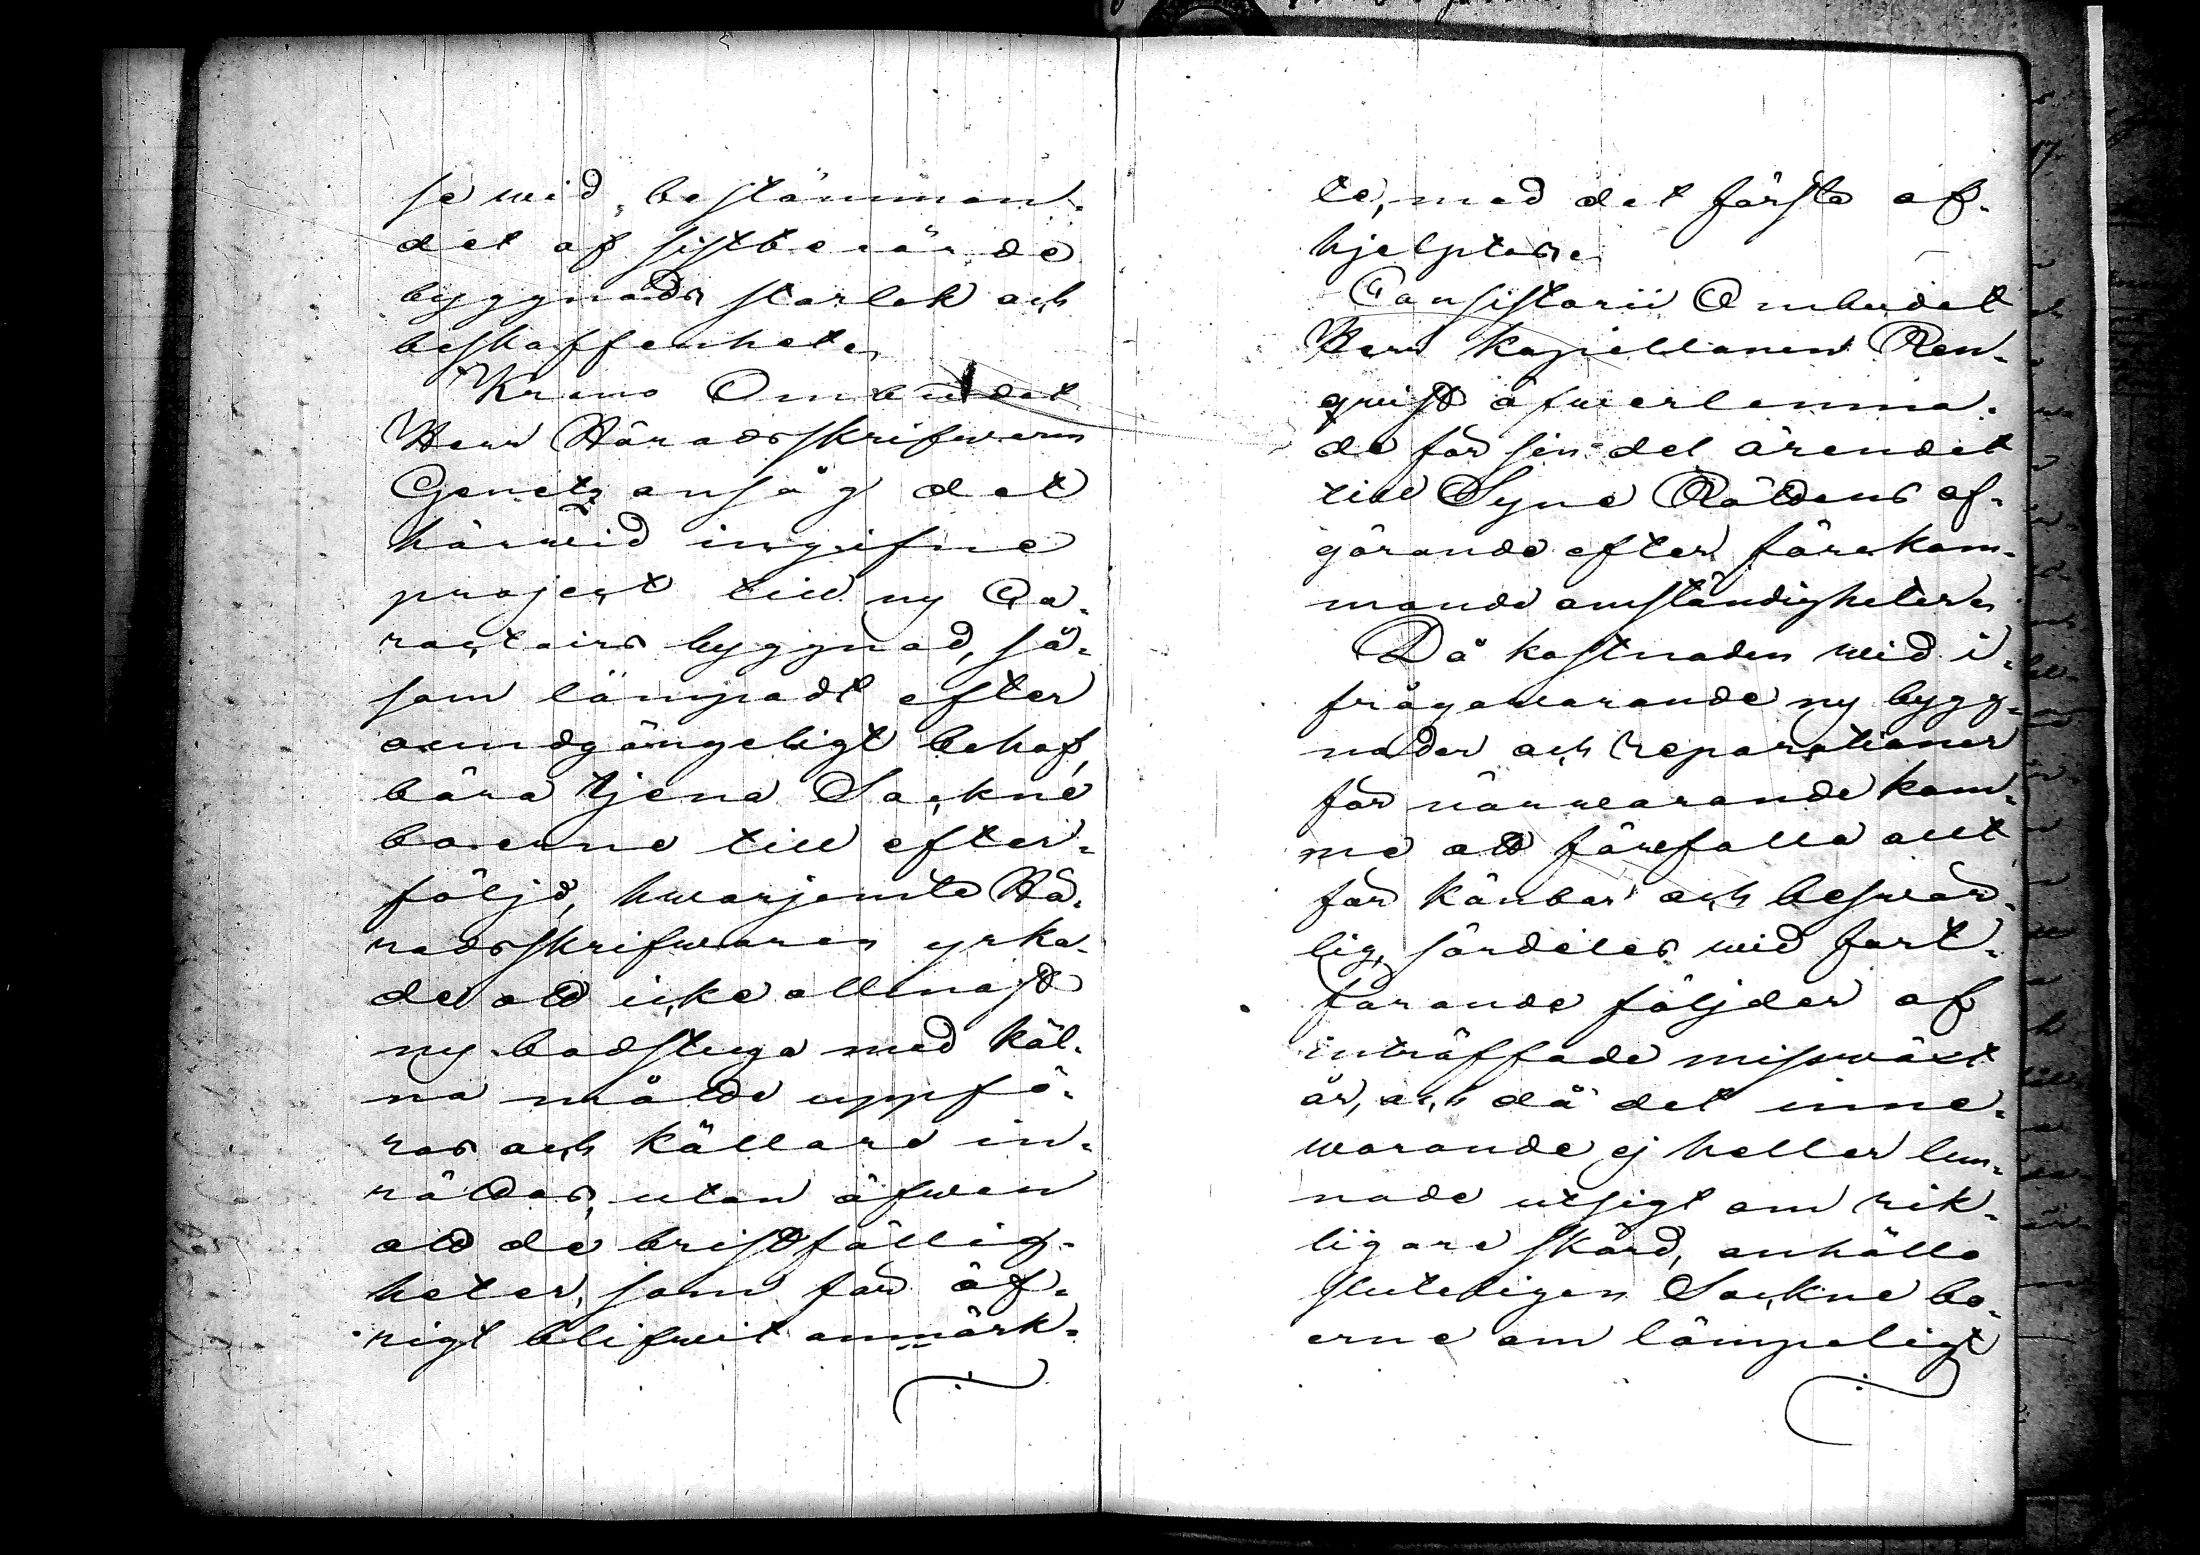 se wid bestämman-
det af sistberörde
byggnads storlek och
beskaffenhet.
Krono Ombudet
Herr Häradsskrifvaren
Genetz ansåg det
härwid ingifne
project till ny Ca-
racteirs byggnad, så-
som lämpadt efter
oundgängeligt behof,
böra tjena Sockne
boerne till efter-
följd, hwarjemte Hä-
radsskrifwaren yrka-
de att icke allenast
ny badstuga med Köl-
na måtte uppfö-
ras och Källare in-
rättas, utan äfwen
att de bristfällig-
heter, som för öf-
rigt blifwit anmärk-
te, med det första af-
hjelptes.
Consistorii Ombudet
Herr Kapellanen Ren-
qvist öfwerlemna-
de för sin del ärendet
till Syne Rättens af-
görande efter förekom-
mande omständigheter.
Då kostnaden wid i-
frågawarande ny bygg-
nader och reparationer
för närwarande kom-
me att förefalla allt
för känbar och beswär-
lig, särdeles wid fort-
farande följder af
inträffade missväxt
år, och då det inne-
warande ej heller lem-
nade utsigt om rik-
ligare skörd, anhöllo
sluteligen Sockne bo-
erne om lämpeligt